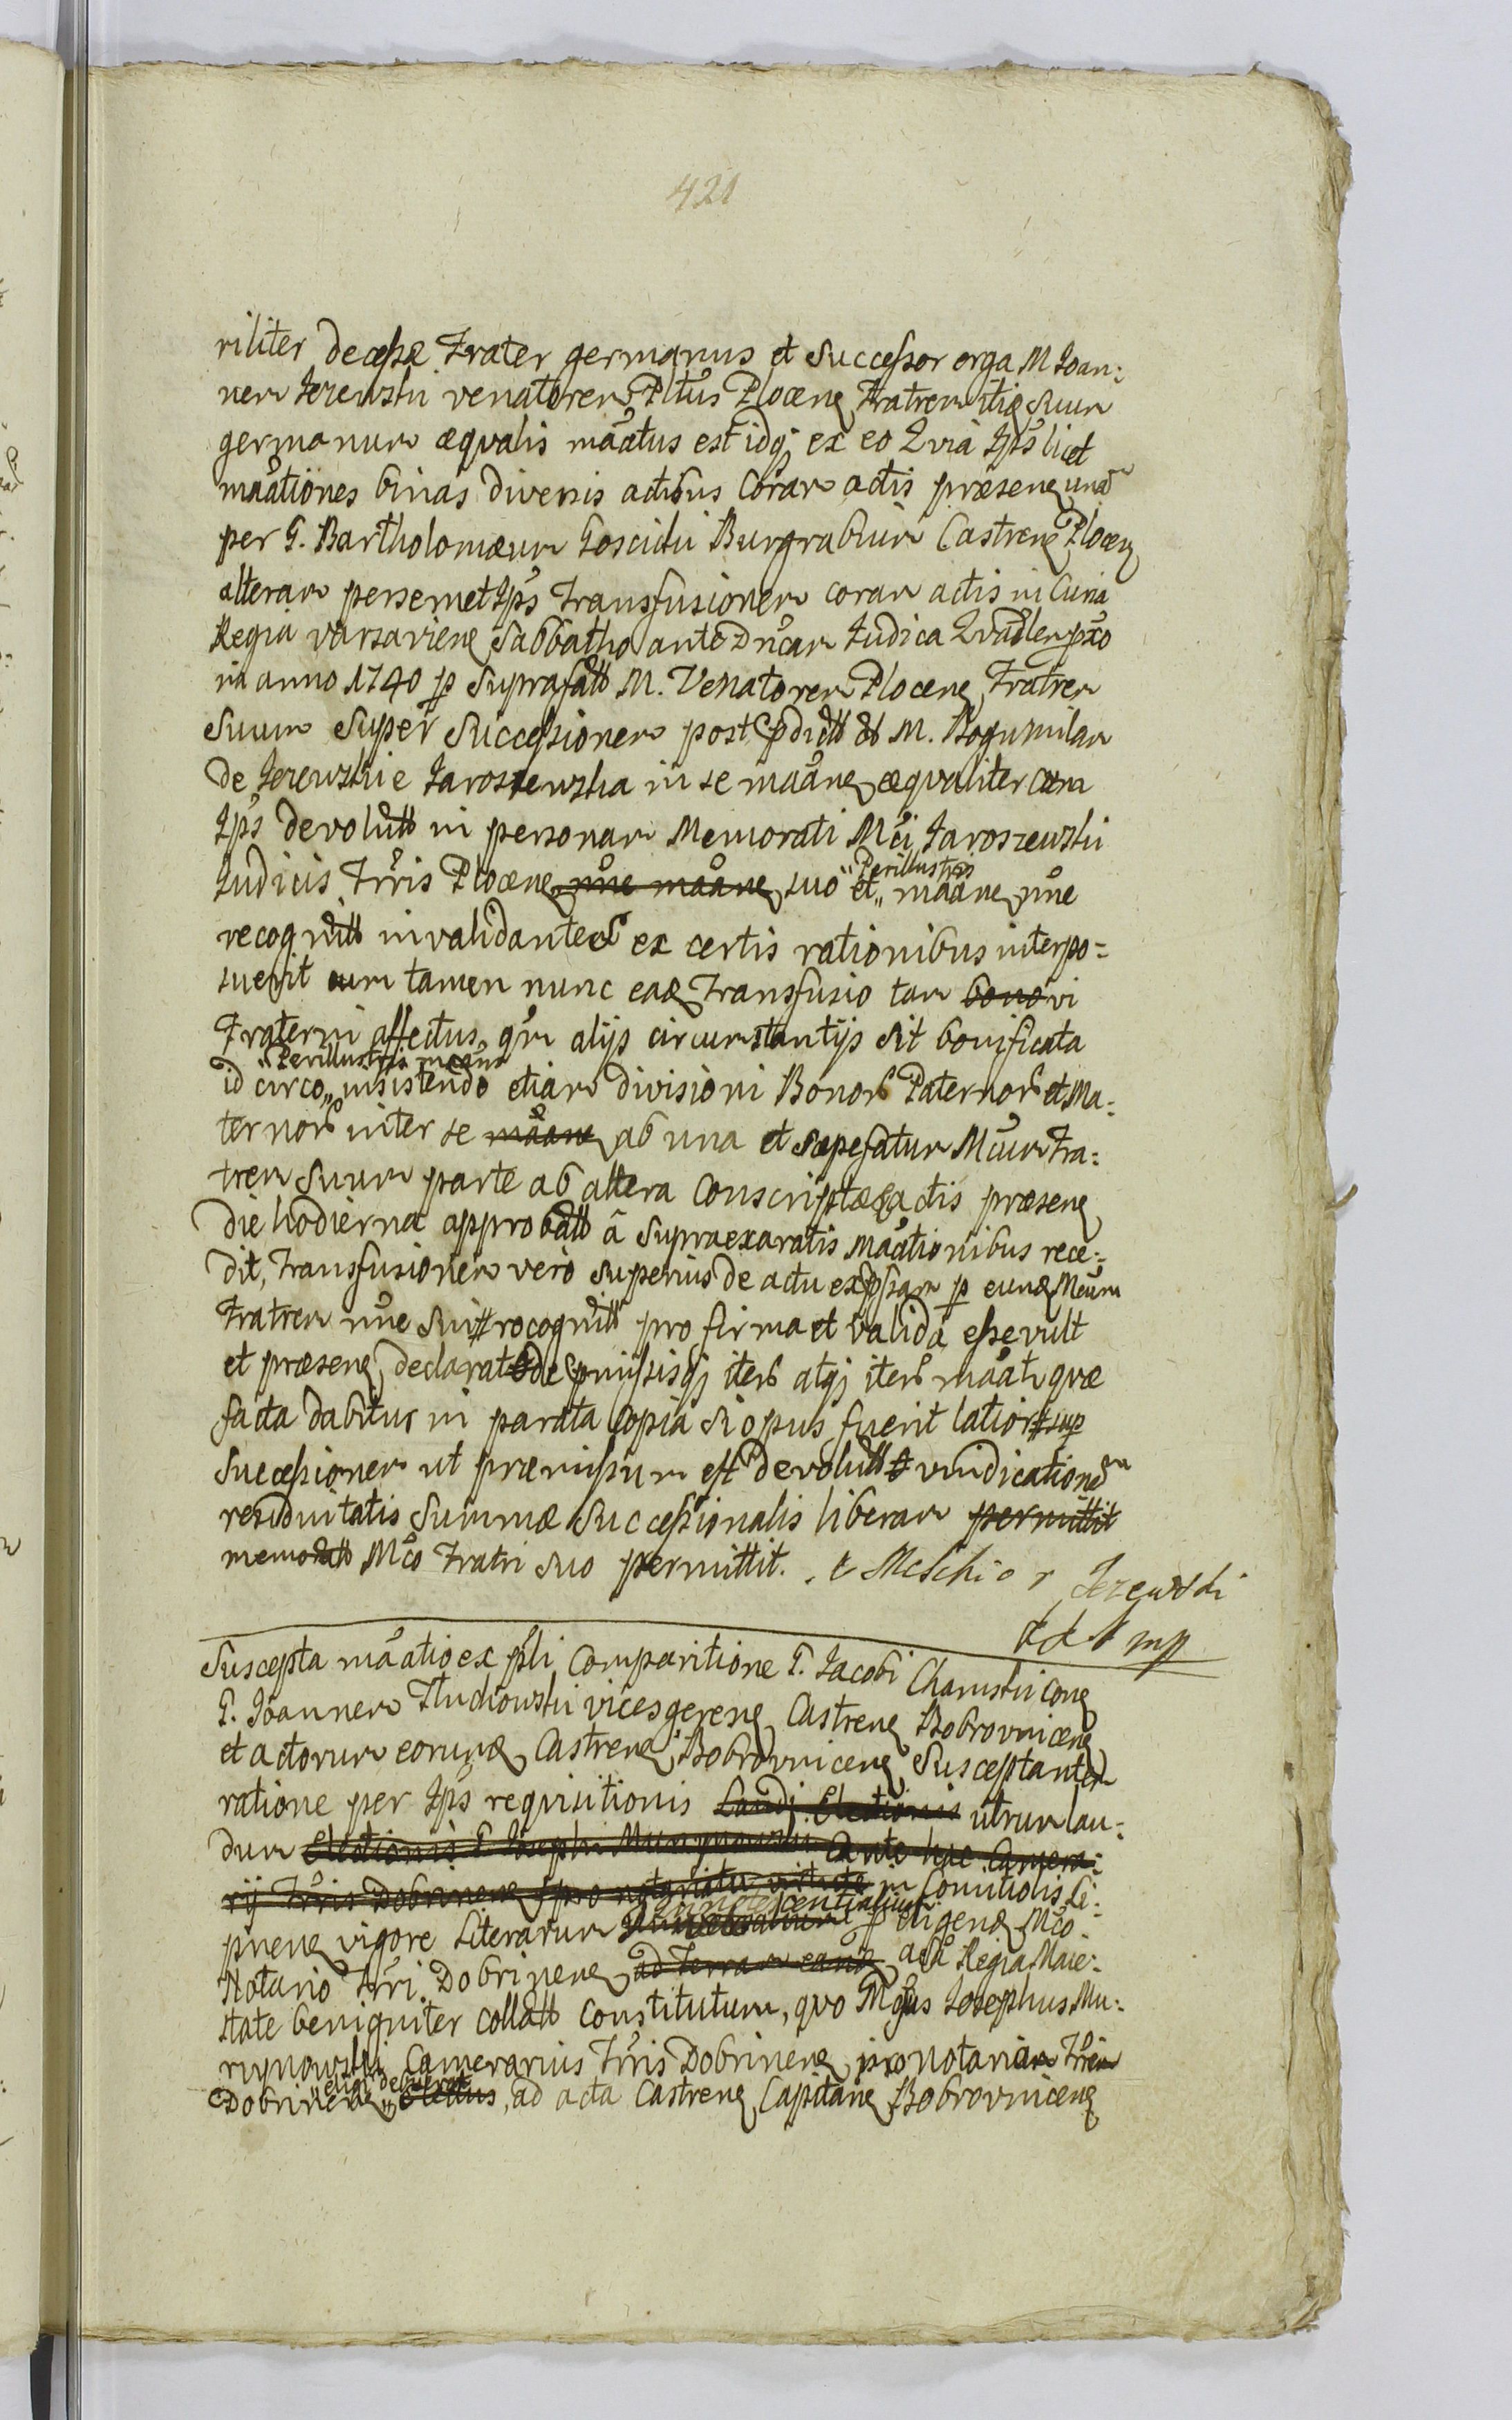 421
riliter decessæ Frater germanus et Successor erga M Joan:
nem Jezewski venatorem Pltûs Plocen Fratrem itid Suum
germanum æqvalis maatus est idq ex eo Qvia Ips licet
maationes binas diversis actibus Coram actis præsen una
per G. Bartholomæum Goscicki Burgrabium Castren Plocen
alteram persemet Ips Transfusionem coram actis in Curia
Regia varsavien Sabbatho ante Dncam Judica Qvadlem pxo
in anno 1740 p Suprafatt M. Venatorem Plocen Fratrem
Suum Super Successionem post pdictt M. Bogumilam
de Jezewskie Jaroszewska in se maan æqvaliter cum
Ips devolutt in personam Memorati Mci Jaroszewski
Judicis Trris Plocen nne maane suo et „Perillustris maane nne
recognitt invalidantes ex certis rationibus interpo=
suerit cum tamen nunc ead Transfusio tam bono vi
Fraterni affectus qm alijs circumstantijs sit bonificata
id circo „Perillustris maans insistendo etiam divisioni Bonor Paternor et Ma:
ternor inter se maane ab una et sæpefatum Mcum Fra:
trem Suum parte ab altera Conscriptæ actis præsen
die hodierna approbatt â supraexaratis maationibus rece:
dit, Transfusionem vero superius de actu expssam p eund Mcum
Fratrem nne Sui recognitt pro firma et valida esse vult
et præsen declarat de pmissisq iter atq iter maat qvæ
facta dabitur in parata Copia Si opus fuerit latior sup
Successionem ut præmissum est devolutt vindicationem
residuitatis Summæ Successionalis liberam permittit
memoratt Mco Fratri suo permittit. Melchior Jezewski
mp
Suscepta maatio ex psli Comparitione G. Jacobi Charuski con
G. Joannem Studiowski vicesgeren Castren Bobrovnicen
et actorum eorund Castren Bobrovnicen Susceptantem
ratione per Ips reqvisitionis Laudi Electionis utrum lau:
dum Electionis G Josephi Murynowski Ante hac Camera:
rij Trris Dobrinen pro notariatu virtute in Comitiolis Li:
pnen vigore Literarum Universalium Innotescentialium p eligend Mco
Notario Trri Dobrinen ad Terram eand a Sa Regia Maie:
state benigniter collatt Constitutum, qvo Mgfus Josephus Mu:
rynowski Camerarius Trris Dobrinen pro notariam Trrem
Dobrinen „eligi debuerat electus, ad acta Castren Capitan Bobrovnicen